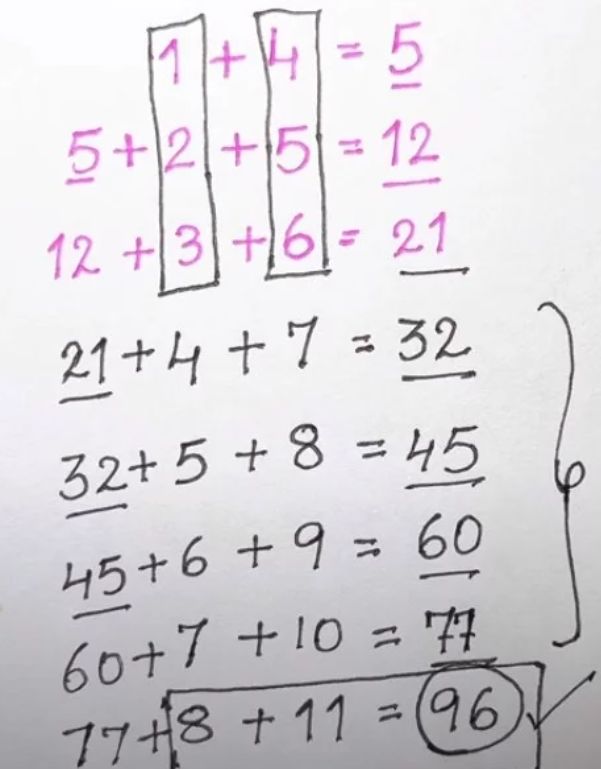 1 + 4 = 5
5 + 2 + 5 = 12
12 + 3 + 6 = 21
21 + 4 + 7 = 32
32 + 5 + 8 = 45
45 + 6 + 9 = 60
60 + 7 + 10 = 77
77 + 8 + 11 = 96